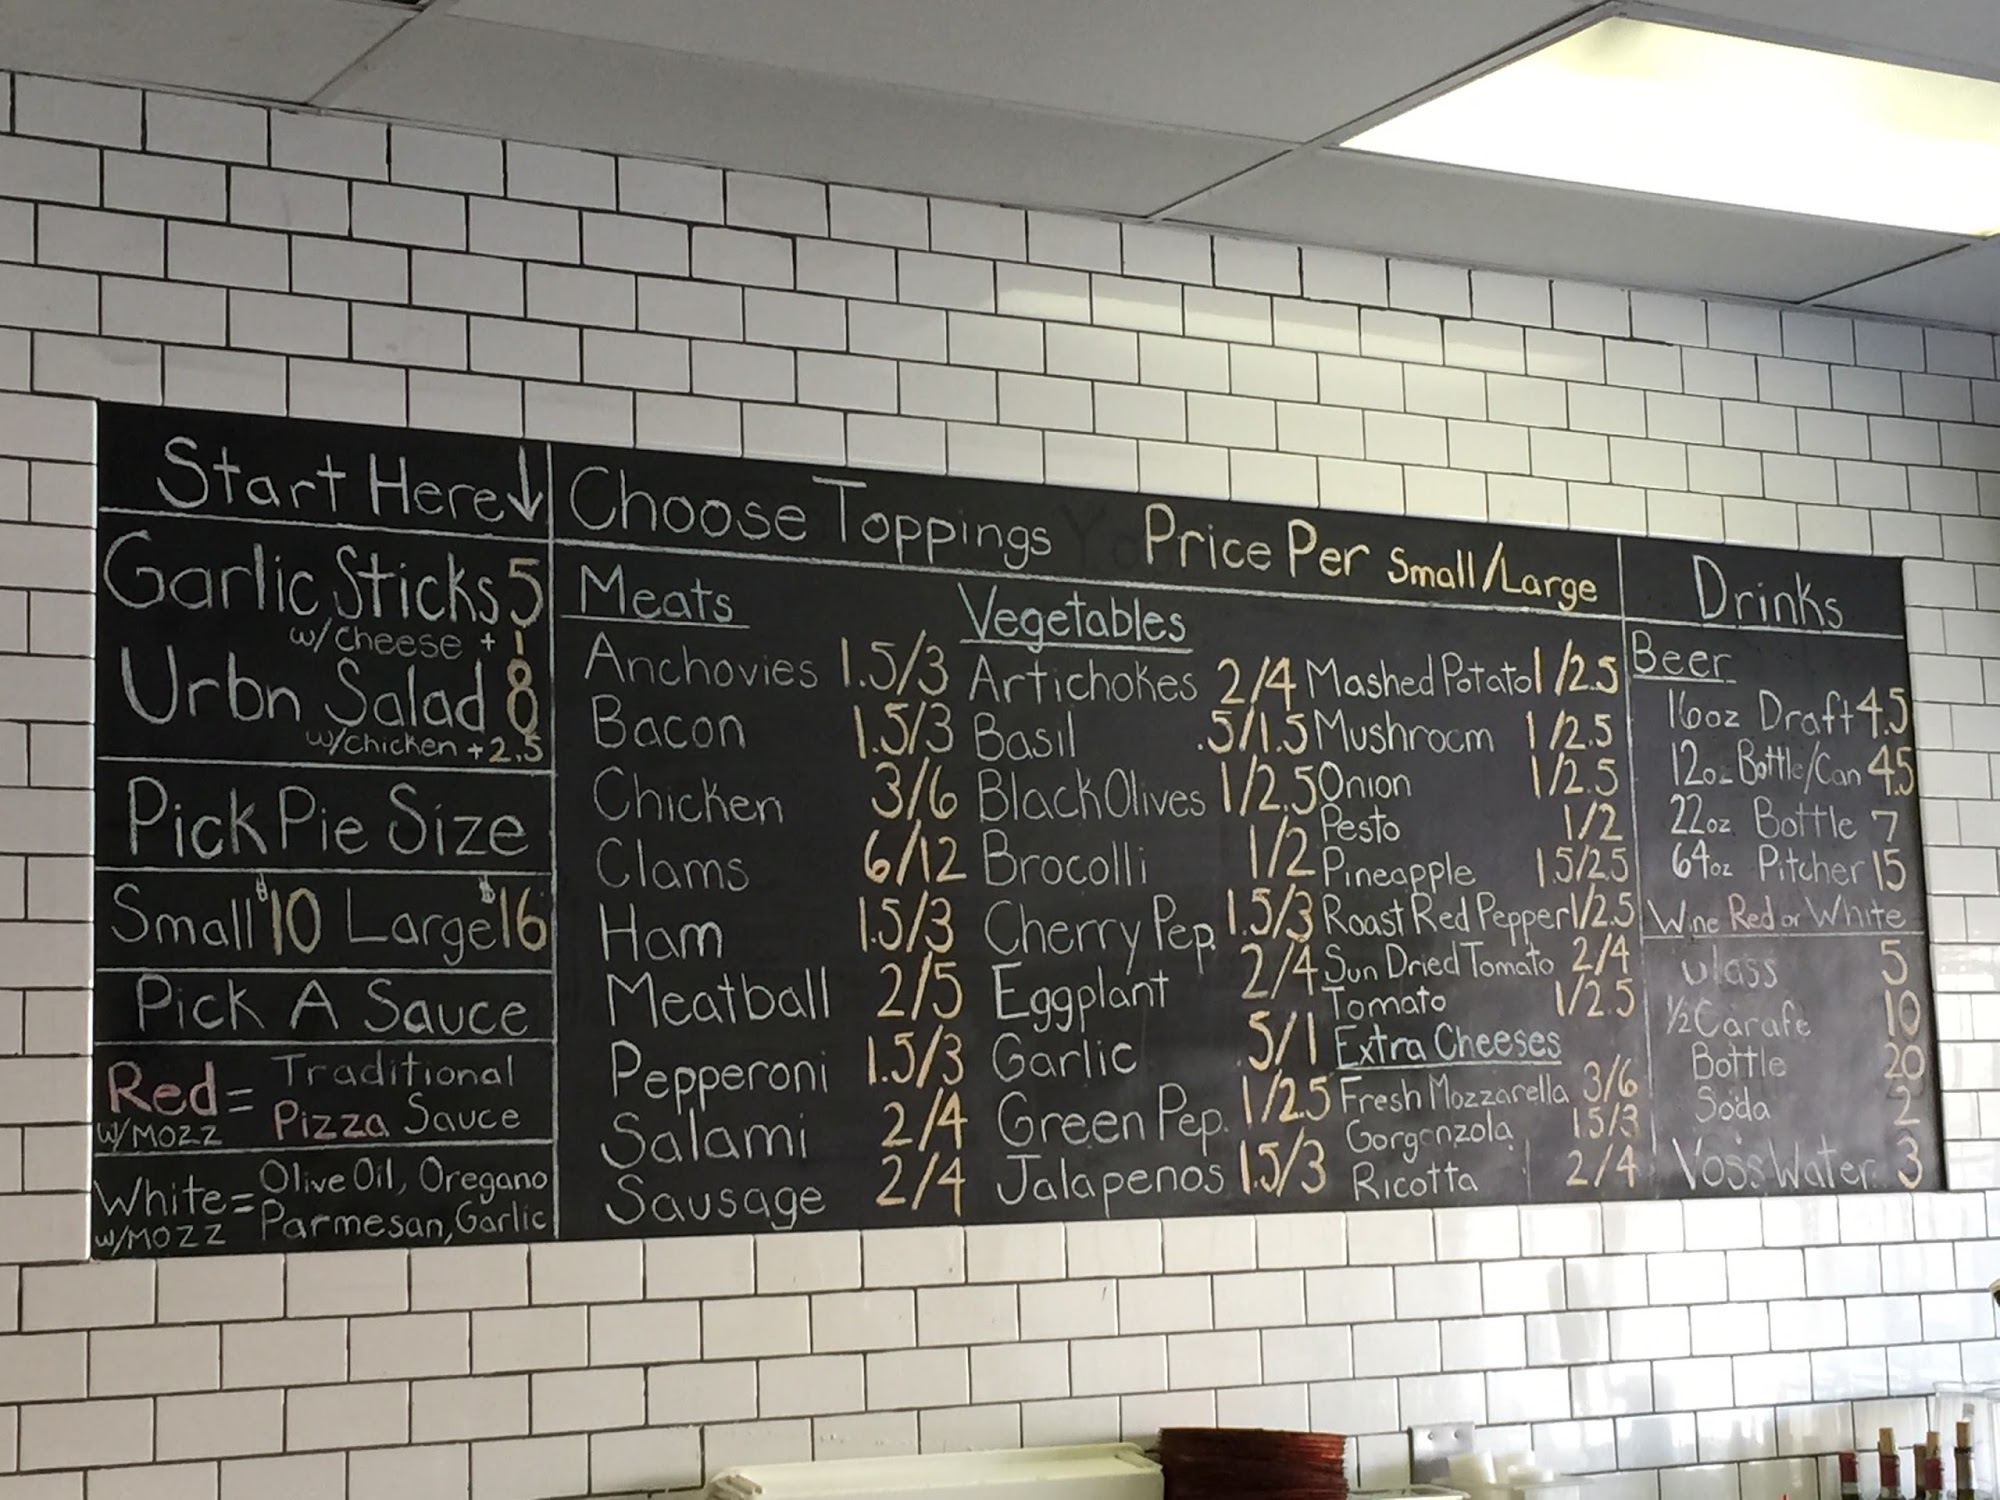 Start Here↓
Garlic Sticks 5
w/cheese + 1
Urbn Salad 8
w/chicken +2.5
Pick Pie Size
Small $10 Large $16
Pick A Sauce
Red = Traditional
w/MOZZ Pizza Sauce
White = Olive Oil, Oregano
w/MOZZ Parmesan, Garlic
Choose Toppings Price Per Small/Large
Meats
Anchovies 1.5/3
Bacon 1.5/3
Chicken 3/6
Clams 6/12
Ham 1.5/3
Meatball 2/5
Pepperoni 1.5/3
Salami 2/4
Sausage 2/4
Vegetables
Artichokes 2/4
Basil .5/1.5
Black Olives 1/2.5
Brocolli 1/2
Cherry Pep. 1.5/3
Eggplant 2/4
Garlic .5/1
Green Pep. 1/2.5
Jalapenos 1.5/3
Mashed Potato 1/2.5
Mushroom 1/2.5
Onion 1/2.5
Pesto 1/2
Pineapple 1.5/2.5
Roast Red Pepper 1/2.5
Sun Dried Tomato 2/4
Tomato 1/2.5
Extra Cheeses
Fresh Mozzarella 3/6
Gorgonzola 1.5/3
Ricotta 2/4
Drinks
Beer
16oz Draft 4.5
12oz Bottle/Can 4.5
22oz. Bottle 7
64oz Pitcher 15
Wine Red or White
Glass 5
½ Carafe 10
Bottle 20
Soda 2
Voss Water 3